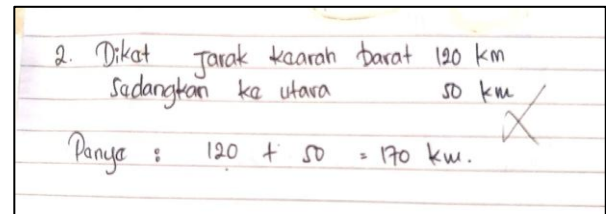 2. Dikat Jarak kaarah barat 120 km
Sadangkan ke utara 50 km
Panya : 120 + 50 = 170 km.